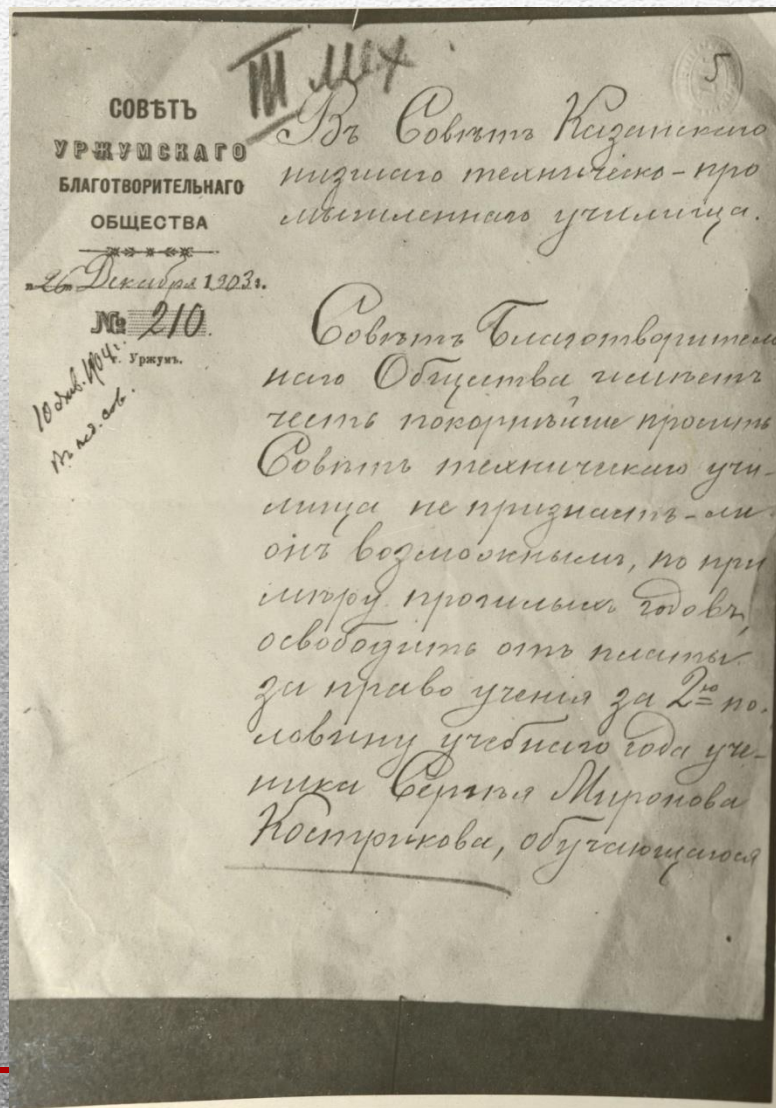 III мех.
5
СОВѢТЪ
УРЖУМСКАГО
БЛАГОТВОРИТЕЛЬНАГО
ОБЩЕСТВА
"26" Декабря 1903 г.
№ 210.
г. Уржумъ.
10 янв. 1904 г.
Въ пед. сов.
Въ Совѣтъ Казанскаго
низшаго техническо-про
мышленнаго училища.
Совѣтъ Благотворитель
наго Общества имѣетъ
честь покорнѣйше просить
Совѣтъ техническаго учи-
лища не признаетъ-ли
онъ возможнымъ, по при
мѣру прошлыхъ годовъ,
освободить отъ платы
за право ученія за 2ую по-
ловину учебнаго года уче-
ника Сергѣя Миронова
Кострикова, обучающагося